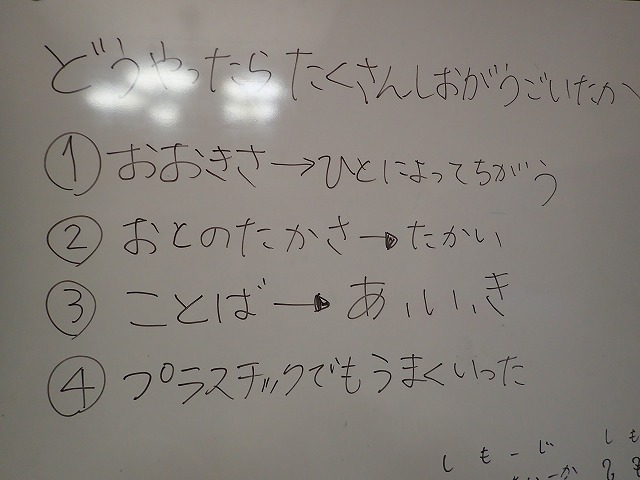 どうやったらたくさんしおがうごいたか
①おおきさ→ひとによってちがう
②おとのたかさ→たかい
③ことば→あ,い,い,き
④プラスチックでもうまくいった
しもーじ しも